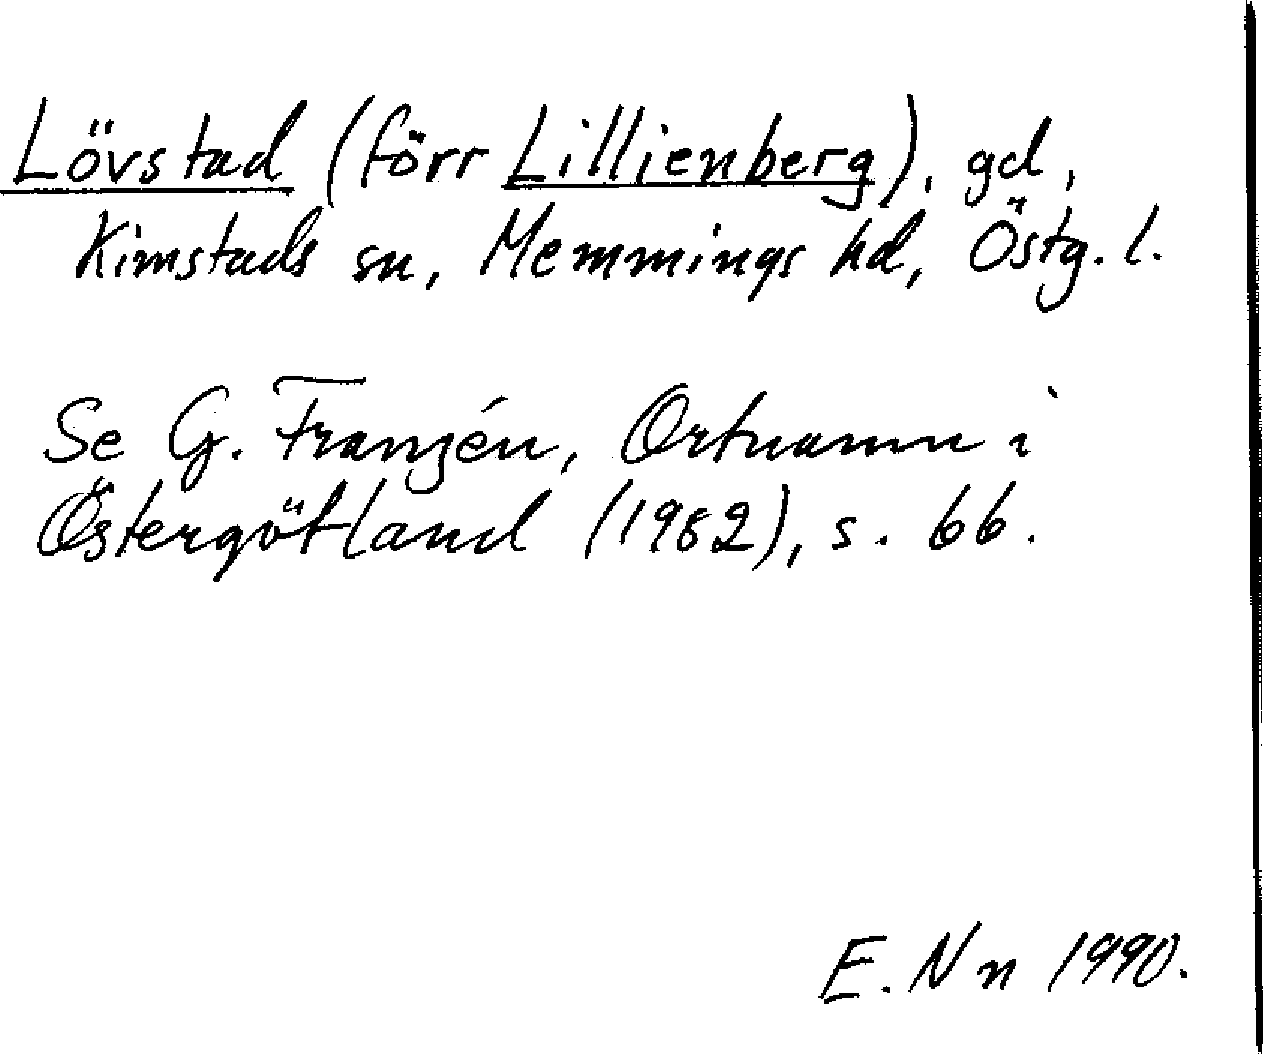 Lövstad (förr Lillienberg), gd,
Kimstads sn, Memmings hd, Östg. l.
Se G. Franzén, Ortnamn i
Östergötland (1982), s. 66.
E. Nn 1990.